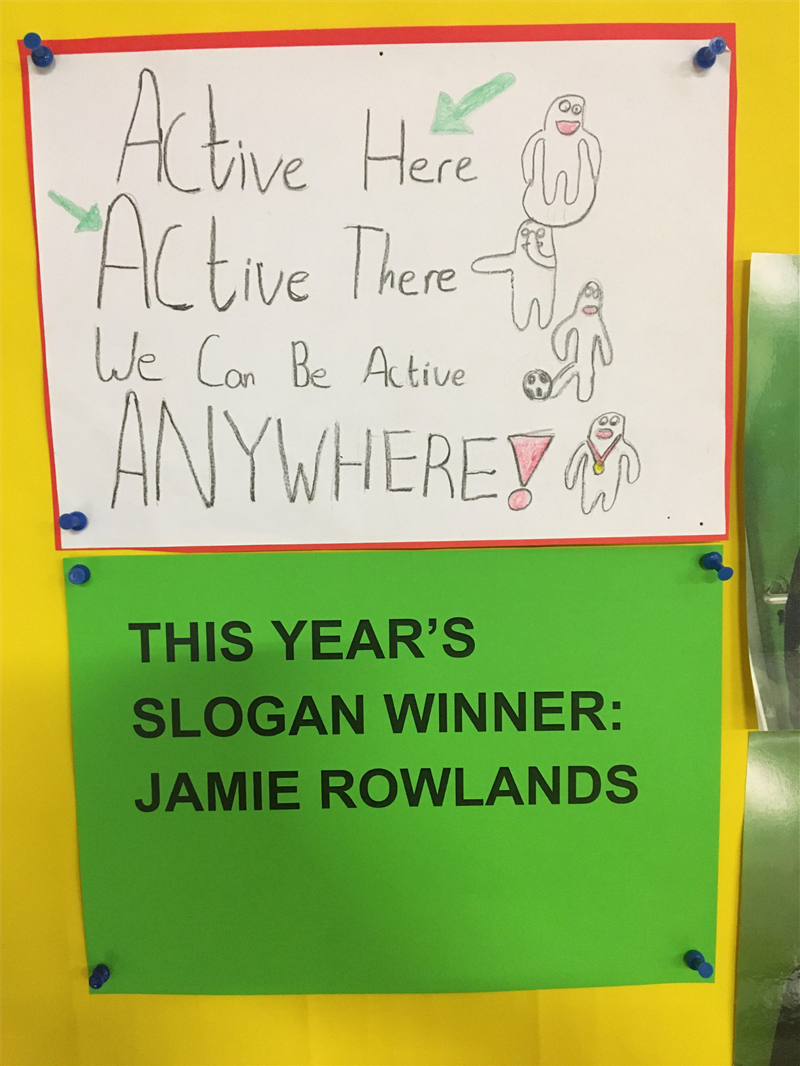 Active Here
Active There
We Can Be Active
ANYWHERE!
THIS YEAR'S
SLOGAN WINNER:
JAMIE ROWLANDS